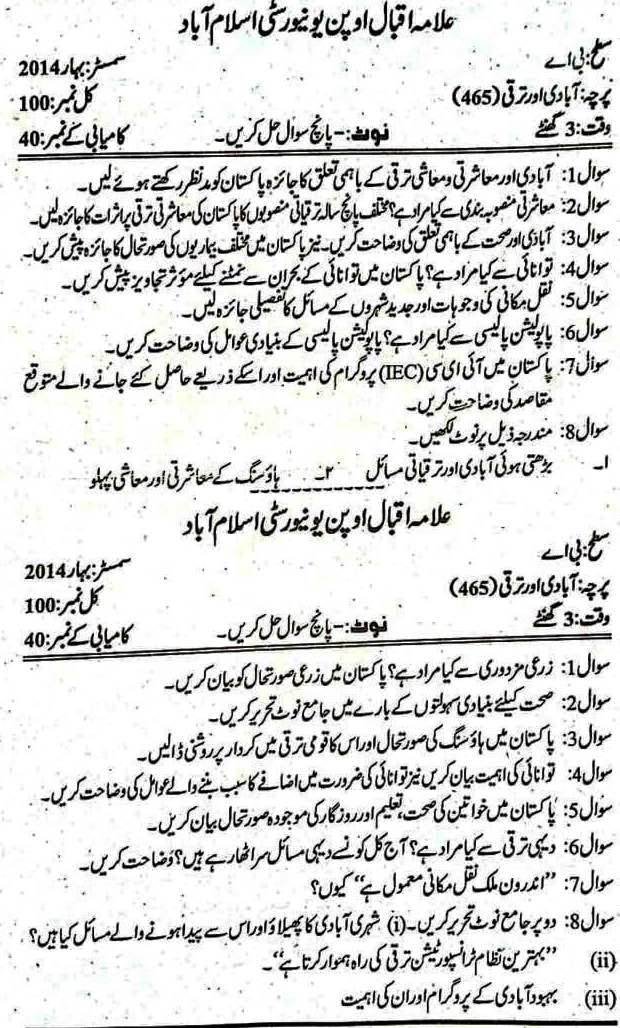 علامہ اقبال اوپن یونیورسٹی اسلام آباد
سطح: بی اے سمسٹر: بہار 2014
پرچہ: آبادی اور ترقی (465) کل نمبر: 100
وقت: 3 گھنٹے نوٹ:- پانچ سوال حل کریں۔ کامیابی کے نمبر: 40
سوال 1: آبادی اور معاشرتی و معاشی ترقی کے باہمی تعلق کا جائزہ پاکستان کو مدنظر رکھتے ہوئے لیں۔
سوال 2: معاشرتی منصوبہ بندی سے کیا مراد ہے؟ مختلف پانچ سالہ ترقیاتی منصوبوں کا پاکستان کی معاشرتی ترقی پر اثرات کا جائزہ لیں۔
سوال 3: آبادی اور صحت کے باہمی تعلق کی وضاحت کریں۔ نیز پاکستان میں مختلف بیماریوں کی صورتحال کا جائزہ پیش کریں۔
سوال 4: توانائی سے کیا مراد ہے؟ پاکستان میں توانائی کے بحران سے نمٹنے کیلئے مؤثر تجاویز پیش کریں۔
سوال 5: نقل مکانی کی وجوہات اور جدید شہروں کے مسائل کا تفصیلی جائزہ لیں۔
سوال 6: پاپولیشن پالیسی سے کیا مراد ہے؟ پاپولیشن پالیسی کے بنیادی عوامل کی وضاحت کریں۔
سوال 7: پاکستان میں آئی ای سی (IEC) پروگرام کی اہمیت اور اسکے ذریعے حاصل کئے جانے والے متوقع
مقاصد کی وضاحت کریں۔
سوال 8: مندرجہ ذیل پر نوٹ لکھیں۔
۱۔ بڑھتی ہوئی آبادی اور ترقیاتی مسائل ۲۔ ہاؤسنگ کے معاشرتی اور معاشی پہلو
علامہ اقبال اوپن یونیورسٹی اسلام آباد
سطح: بی اے سمسٹر: بہار 2014
پرچہ: آبادی اور ترقی (465) کل نمبر: 100
وقت: 3 گھنٹے نوٹ:- پانچ سوال حل کریں۔ کامیابی کے نمبر: 40
سوال 1: زرعی مزدوری سے کیا مراد ہے؟ پاکستان میں زرعی صورتحال کو بیان کریں۔
سوال 2: صحت کیلئے بنیادی سہولتوں کے بارے میں جامع نوٹ تحریر کریں۔
سوال 3: پاکستان میں ہاؤسنگ کی صورتحال اور اس کا قومی ترقی میں کردار پر روشنی ڈالیں۔
سوال 4: توانائی کی اہمیت بیان کریں نیز توانائی کی ضرورت میں اضافے کا سبب بننے والے عوامل کی وضاحت کریں۔
سوال 5: پاکستان میں خواتین کی صحت، تعلیم اور روزگار کی موجودہ صورتحال بیان کریں۔
سوال 6: دیہی ترقی سے کیا مراد ہے؟ آج کل کونسے دیہی مسائل سر اٹھا رہے ہیں؟ وضاحت کریں۔
سوال 7: ”اندرون ملک نقل مکانی معمول ہے“ کیوں؟
سوال 8: دو پر جامع نوٹ تحریر کریں۔ (i) شہری آبادی کا پھیلاؤ اور اس سے پیدا ہونے والے مسائل کیا ہیں؟
(ii) ”بہترین نظام ٹرانسپورٹیشن ترقی کی راہ ہموار کرتا ہے“۔
(iii) بہبود آبادی کے پروگرام اور ان کی اہمیت